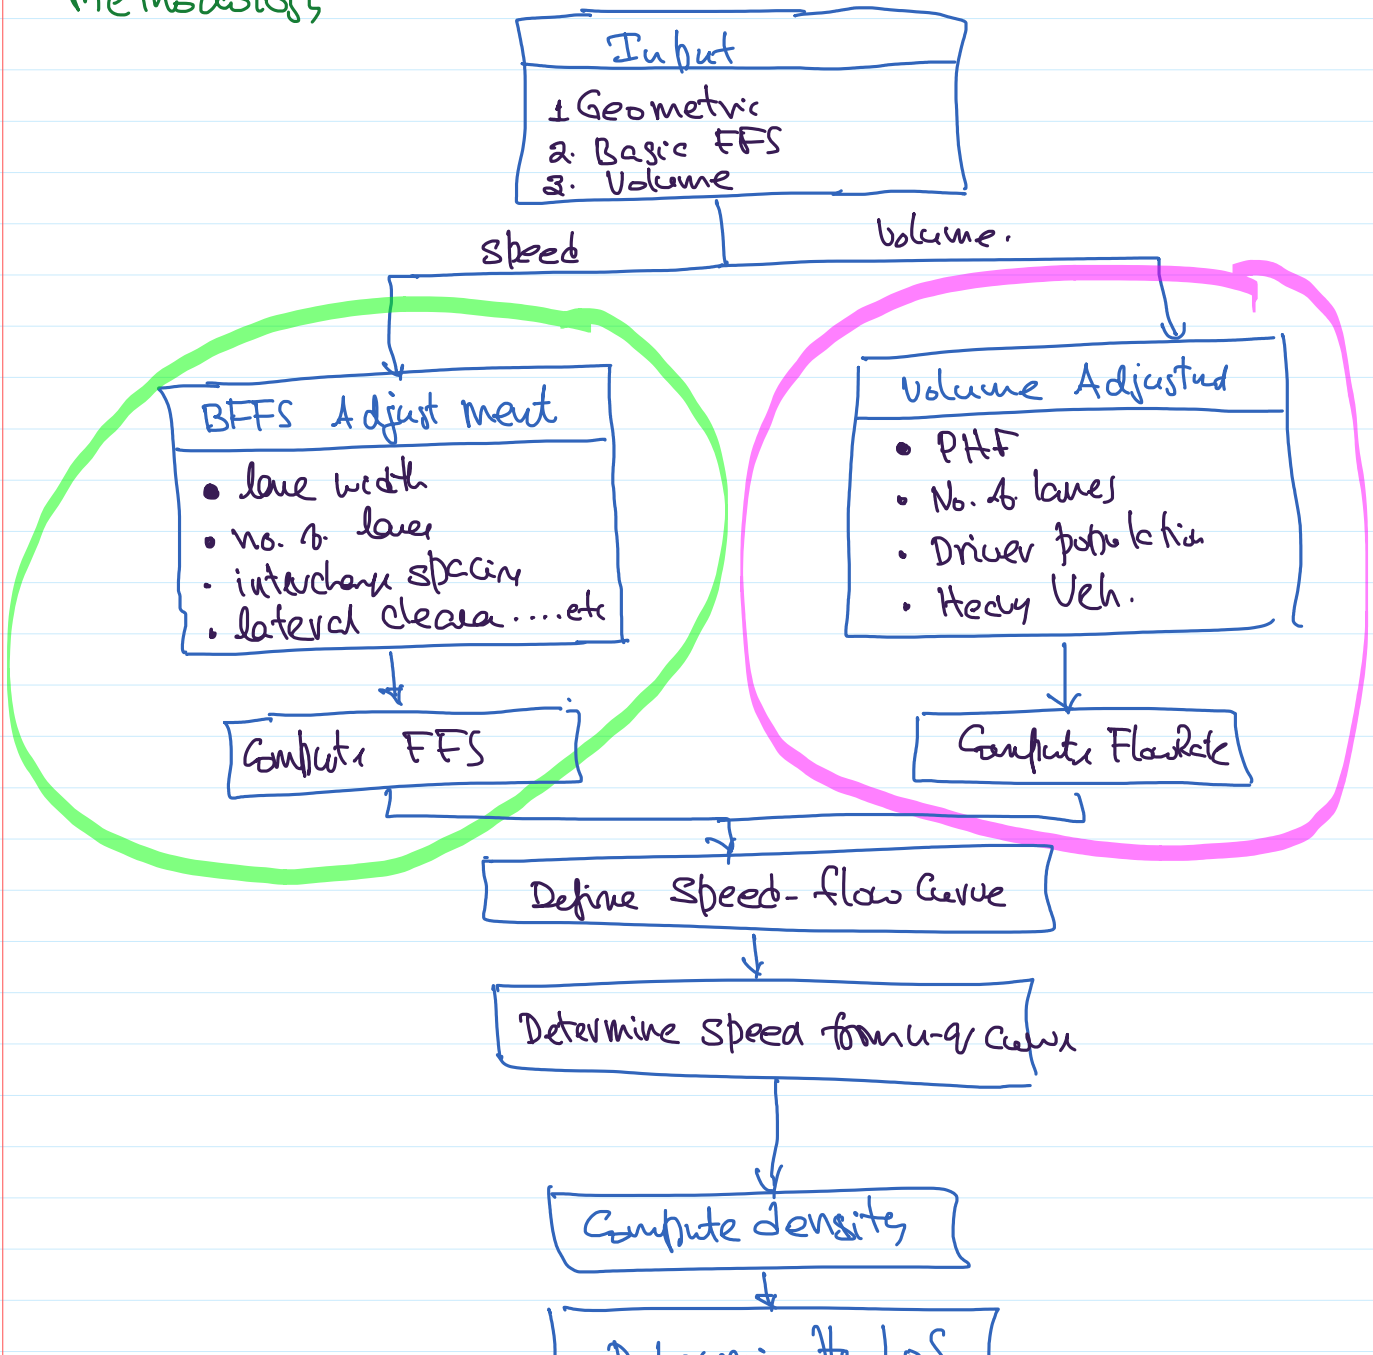 Methodology
Input
1 Geometric
2. Basic FFS
3. Volume
speed
Volume.
BFFS Adjustment
• lane width
• no. of lanes
• interchange spacing
• lateral cleara....etc
Volume Adjustmd
• PHF
• No. of lanes
• Driver population
• Heavy Veh.
Compute FFS
Compute FlowRate
Define Speed-flow Curve
Determine Speed from u-q curve
Compute density
LoS